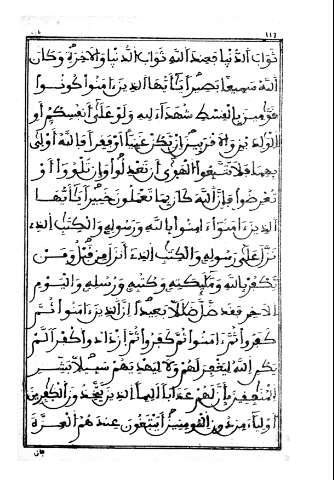 ١١٦
ثَوَابَ الدُّنْيَا فَعِندَ اللَّهِ ثَوَابُ الدُّنْيَا وَالْأَخِرَةِ وَكَانَ
اللَّهُ سَمِيعًا بَصِيرًا يَأَيُّهَا الذِينَ ءَامَنُوا كُونُوا
قَوَّمِينَ بِالْقِسْطِ شُهَدَاءَ لِلهِ وَلَوْ عَلَى أَنفُسِكُمْ أَوِ
الْوَلِدَيْنِ وَالْأَقْرَبِينَ إِنْ يَّكُنْ غَنِيًّا أَوْ فَقِيرًا فَاللَّهُ أَوْلَى
بِهِمَا فَلَا تَتَّبِعُوا الْهَوَى أَن تَعْدِلُوا وَإِن تَلْوُوا أَوْ
تُعْرِضُوا فَإِنَّ اللَّهَ كَانَ بِمَا تَعْمَلُونَ خَبِيرًا يَأَيُّهَا
الذِينَ ءَامَنُوا ءَامِنُوا بِاللَّهِ وَرَسُولِهِ وَالْكِتَبِ الذِي
نَزَّلَ عَلَى رَسُولِهِ وَالْكِتَبِ الذِي أَنزَلَ مِن قَبْلُ وَمَنْ
يَّكْفُرْ بِاللَّهِ وَمَلَئِكَتِهِ وَكُتُبِهِ وَرُسُلِهِ وَالْيَوْمِ
الْأَخِرِ فَقَد ضَّلَّ ضَلَلًا بَعِيدًا إِنَّ الذِينَ ءَامَنُوا ثُمَّ
كَفَرُوا ثُمَّ ءَامَنُوا ثُمَّ كَفَرُوا ثُمَّ ازْدَادُوا كُفْرًا لَّمْ
يَكُنِ اللَّهُ لِيَغْفِرَ لَهُمْ وَلَا لِيَهْدِيَهُمْ سَبِيلًا بَشِّرِ
الْمُنَفِقِينَ بِأَنَّ لَهُمْ عَذَابًا أَلِيمًا الذِينَ يَتَّخِذُونَ الْكَفِرِينَ
أَوْلِيَاءَ مِن دُونِ الْمُومِنِينَ أَيَبْتَغُونَ عِندَهُمُ الْعِزَّةَ
فإن